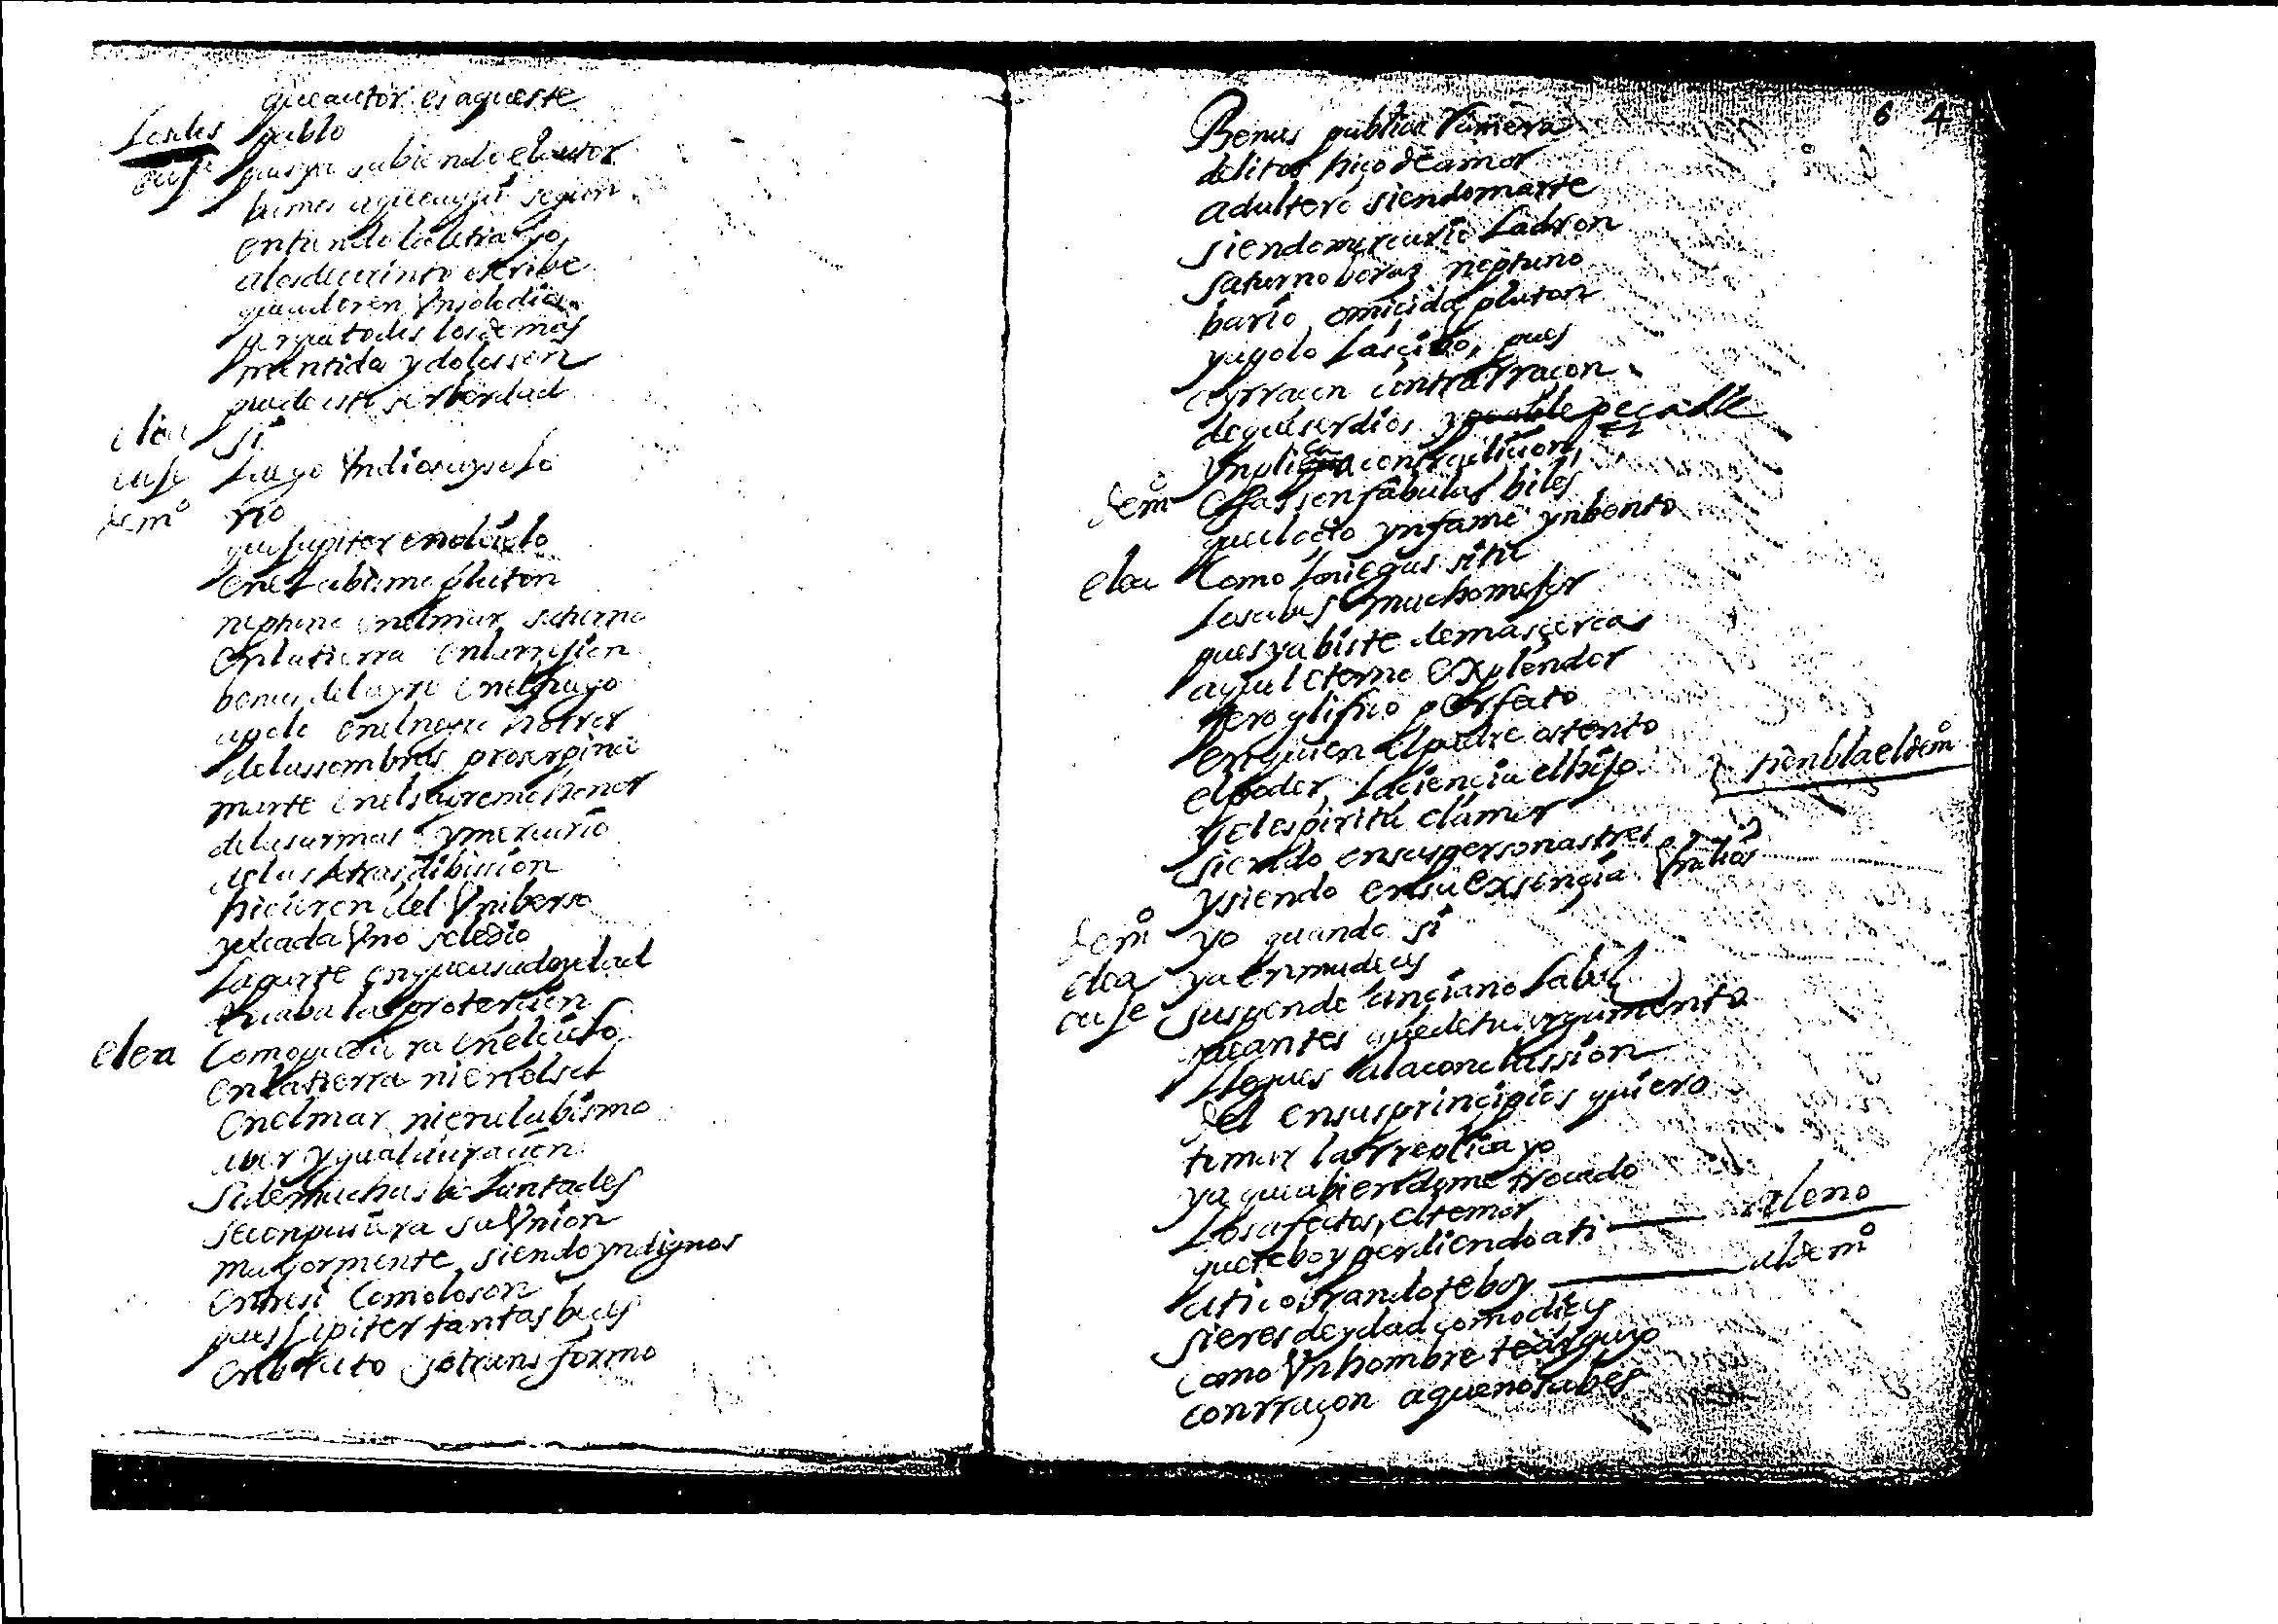 que autor es aqueste
Los dos pablo
euse pues ya sabiendo el autor
bamos a que aqui segun
entiendo la letra yo
a los de corinto escribe
que adoren Un solo dios
porque todos los demas
mentidos ydolos son
puede esto ser berdad
elea si
euse luego Un dios ay solo
demo no
que Jupiter en el cielo
en el abismo pluton
neptuno en el mar saturno
en la tierra en la rrejion
benus del ayre en el fuego
apolo en el negro horror
de las sombras proserpina
marte en el supremo honor
de las armas y mercurio
de las letras dibission
hicieron del Uniberso
y a cada Uno se le dio
la parte en que su deydad
tuaba la proteccion
elea Como pudiera en el cielo
en la tierra ni en el sol
en el mar ni en el abismo
aber ygual duracion
si de muchas boluntades
se conpusiera su Union
mayormente siendo yndignos
entre si Como lo son
pues Jupiter tantas beces
en bruto se transformo
6 4
Benus publica Ramera
delitos hiço de amor
adultero siendo marte
siendo mercurio Ladron
saturno boraz neptuno
bario omicida pluton
y apolo lascibo, pues
ay rraçon contra rraçon
de que ser dios y pecable
ynplica contradicion
demo Essas son fabulas biles
que el ocio ynfame ynbento
elea Como lo niegas si tu
lo sabes mucho mejor
pues ya biste de mas çerca
aquel eterno explendor
geroglifico perfeto
en quien el padre ostento
el poder, la ciencia el hijo tienbla el demo
y el espiritu el amor
siendo en sus personas tres
y siendo en su exsençia Un dios
demo yo quando si
elea ya enmudeces
euse suspende ançiano labio
que antes que de tu argumento
llegues a la conclussion
del en sus principios quiero
tomar la rreplica yo
ya que abiendome trocado
los afectos, el temor
que te boy perdiendo a ti al eno
a ti cobrandote boy al demo
si eres deydad como dices
como Un hombre te arguyo
con rraçon a que no sabes